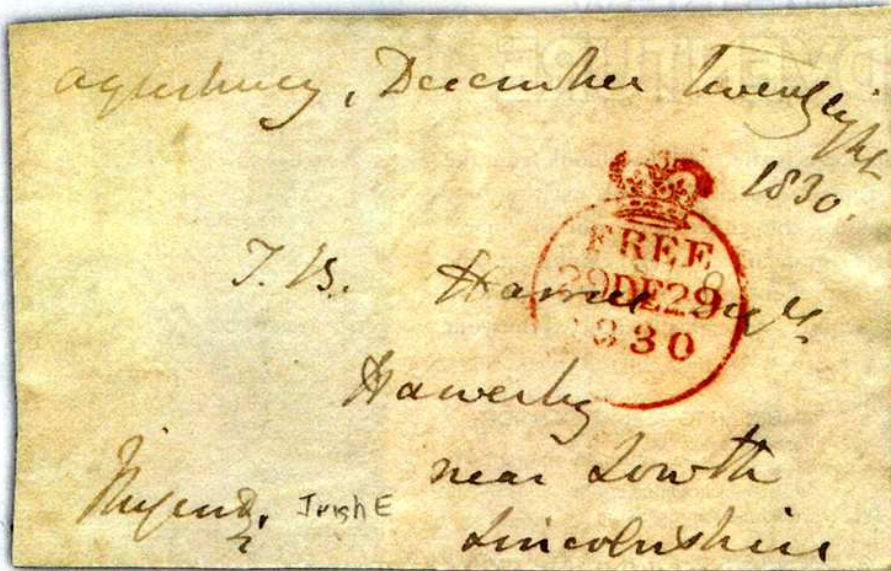 Aylesbury, December twenty eight
1830.
FREE
29 DE 29
1830
T. B. Esqr.
Hawerby
near Lowth
Lincolnshire
Nugent. Irish E